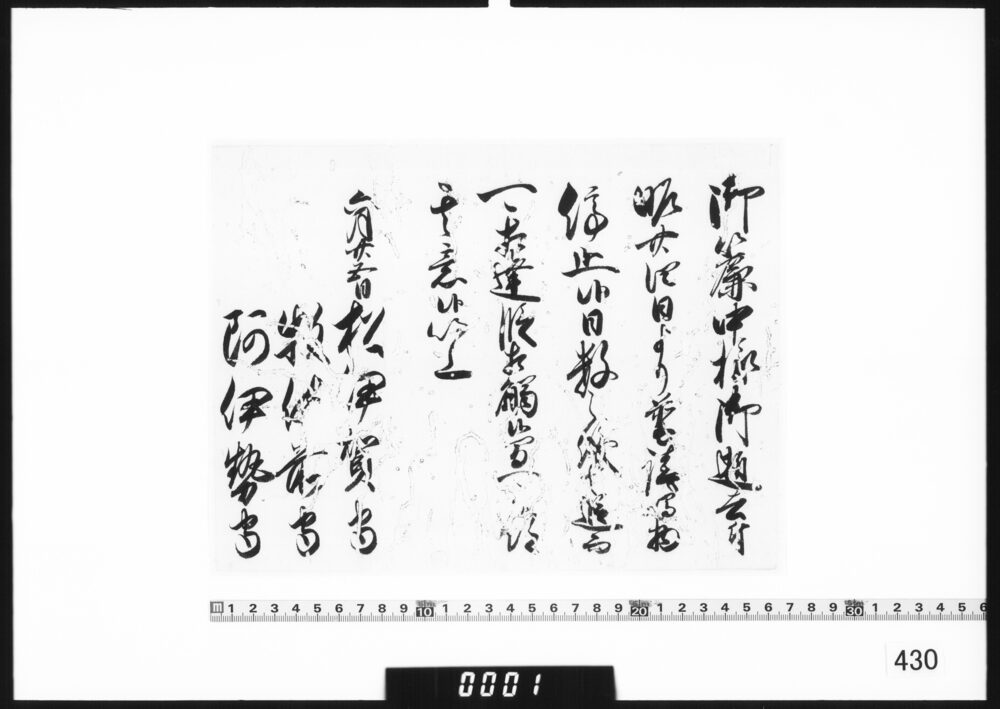 御簾中様御逝去ニ付
昨廿四日より普請鳴物
停止候日数之儀者追而
可相達候相触候間可被得
其意候以上
六月廿五日 松伊賀守
牧備前守
阿伊勢守
m 1 2 3 4 5 6 7 8 9 10 1 2 3 4 5 6 7 8 9 20 1 2 3 4 5 6 7 8 9 30 1 2 3 4 5 6
430
0001